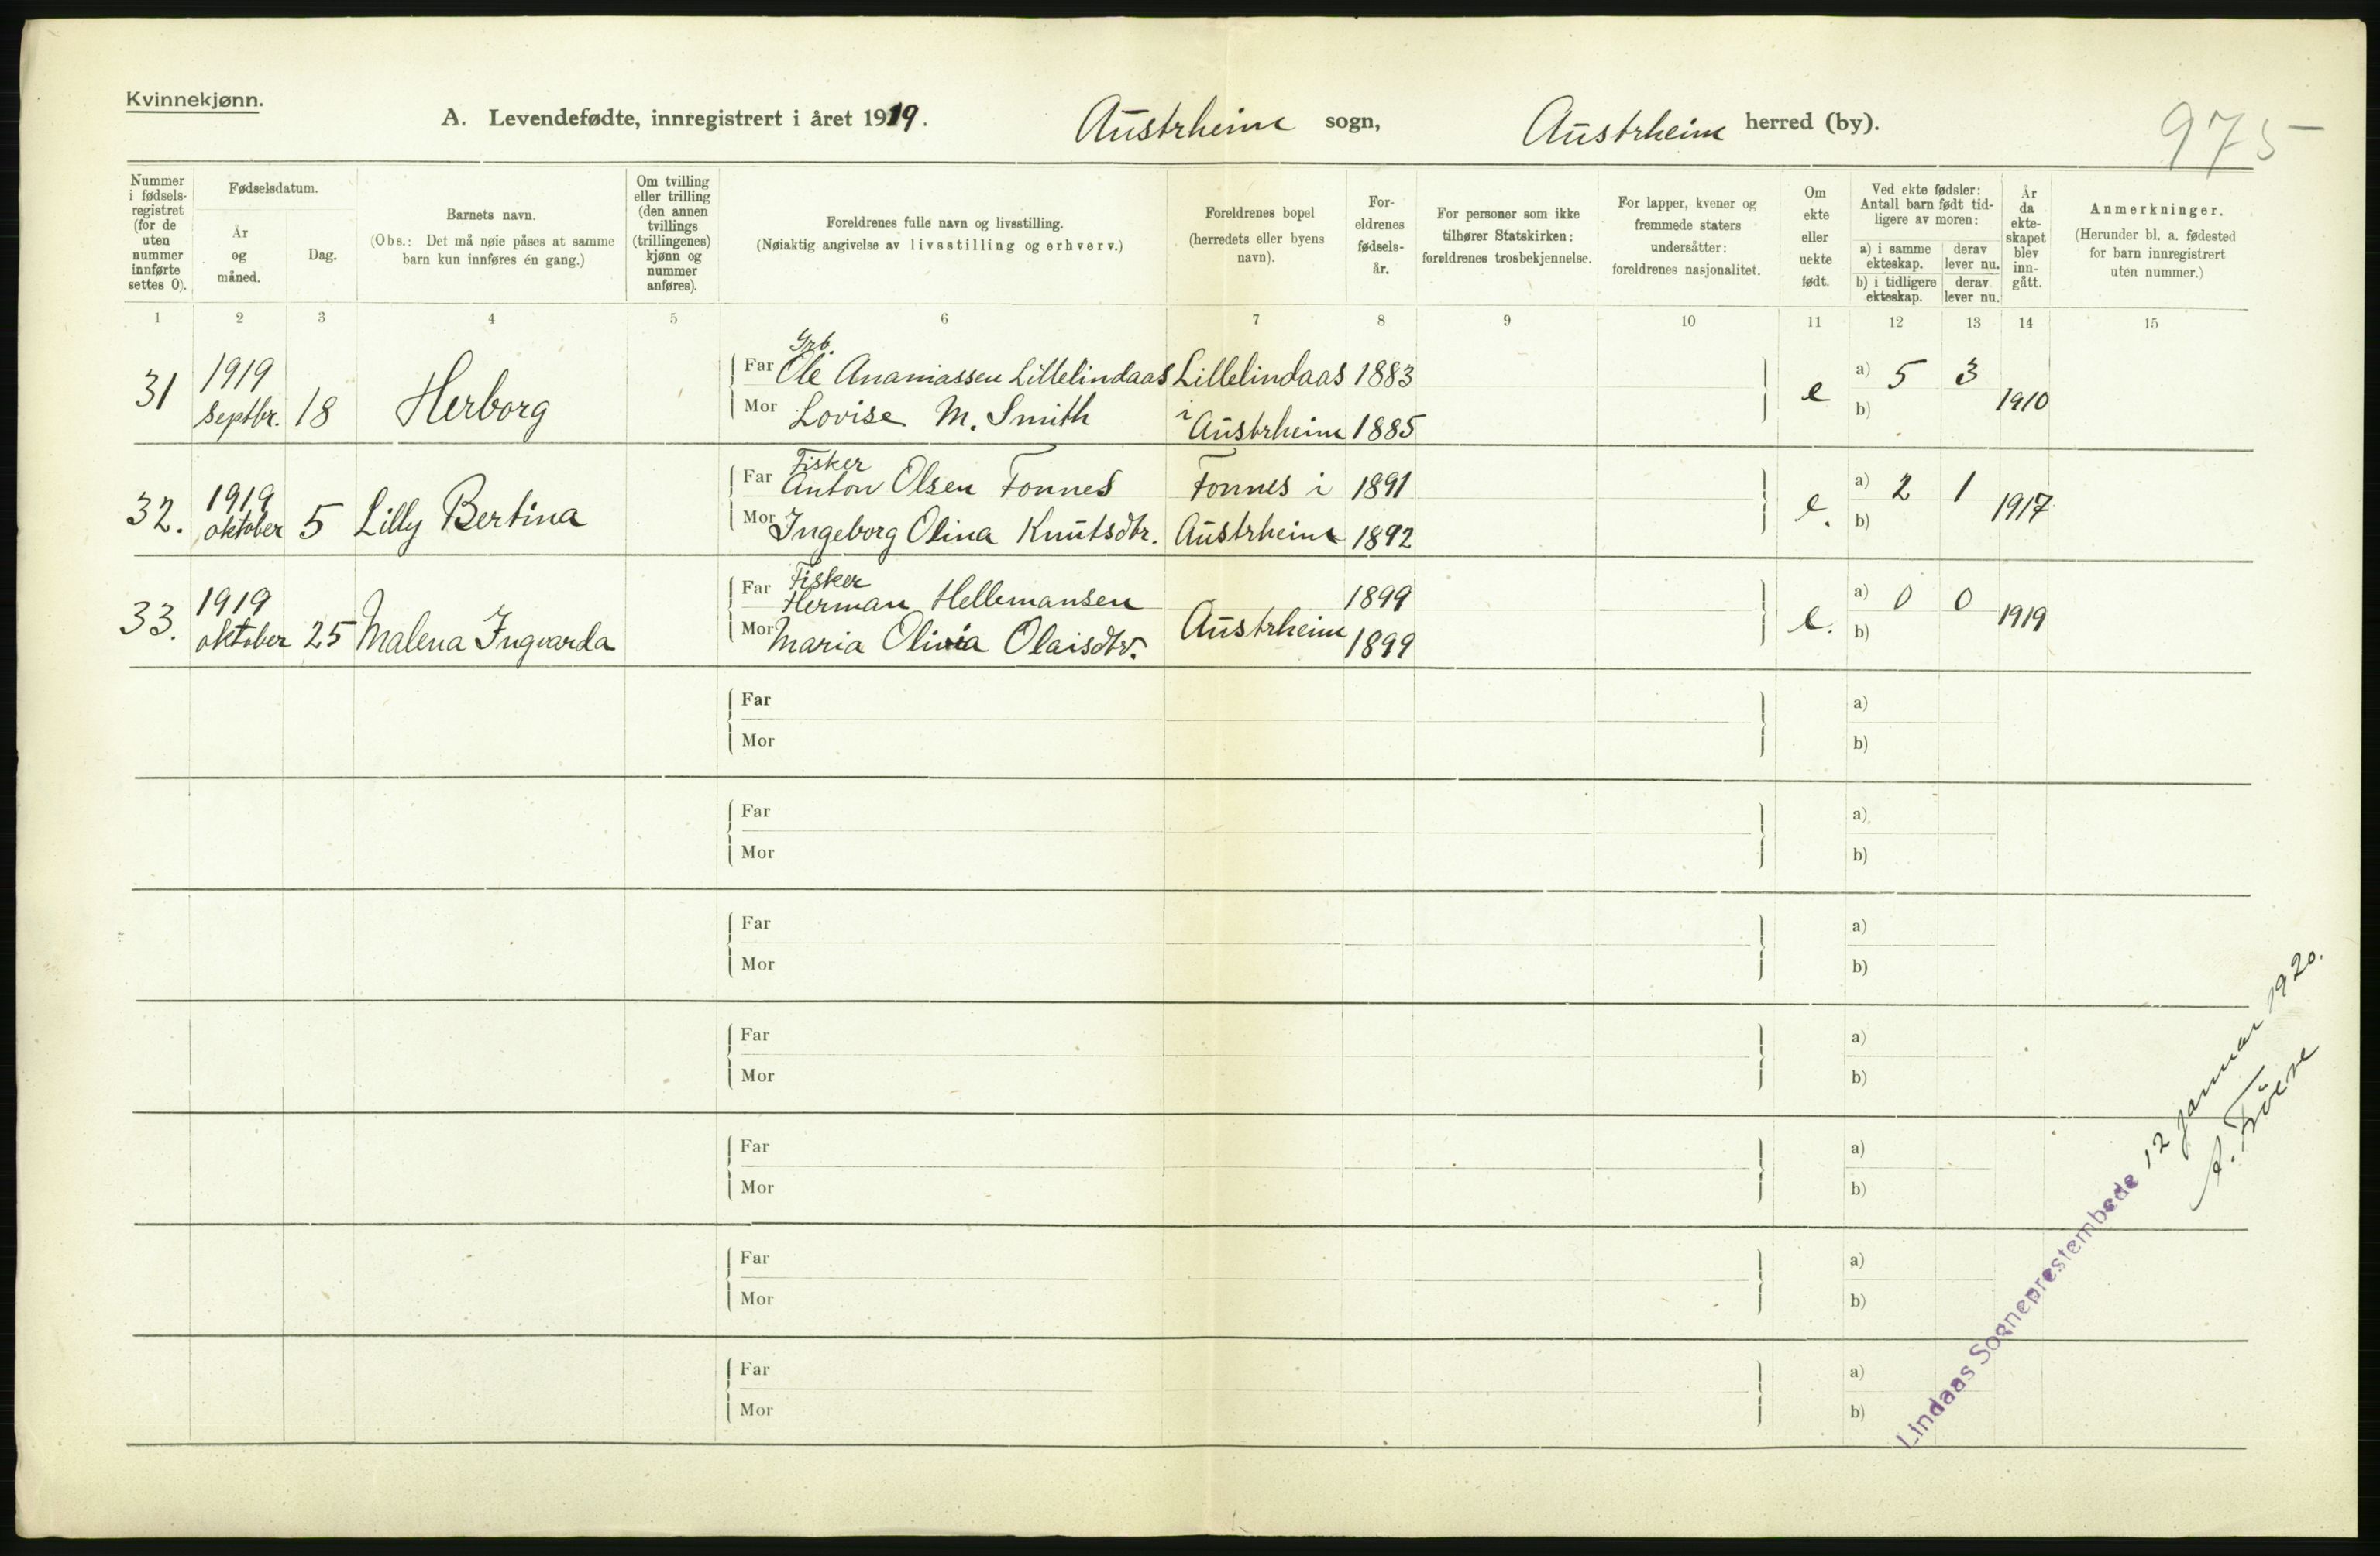 Kvinnekjønn.
A. Levendefødte, innregistrert i året 1919.
Austrheim sogn,
Austrheim herred (by).
975
Nummer i fødselsregistret (for de uten nummer innførte settes 0).
Fødselsdatum.
År og måned.
Dag.
Barnets navn.
(Obs.: Det må nøie påses at samme barn kun innføres én gang.)
Om tvilling eller trilling (den annen tvillings (trillingenes) kjønn og nummer anføres).
Foreldrenes fulle navn og livsstilling.
(Nøiaktig angivelse av livsstilling og erhverv.)
Foreldrenes bopel (herredets eller byens navn).
Foreldrenes fødselsår.
For personer som ikke tilhører Statskirken: foreldrenes trosbekjennelse.
For lapper, kvener og fremmede staters undersåtter: foreldrenes nasjonalitet.
Om ekte eller uekte født.
Ved ekte fødsler: Antall barn født tidligere av moren:
a) i samme ekteskap.
derav lever nu.
b) i tidligere ekteskap.
derav lever nu.
År da ekteskapet blev inngått.
Anmerkninger.
(Herunder bl. a. fødested for barn innregistrert uten nummer.)
1 2 3 4 5 6 7 8 9 10 11 12 13 14 15
31 1919 septbr. 18 Herborg
Far Grb. Ole Ananiassen Lillelindaas Lillelindaas 1883
Mor Lovise M. Smith i Austrheim 1885
e a) 5 3
b)
1910
32. 1919 oktober 5 Lilly Bertina
Far Fisker Anton Olsen Fonnes Fonnes i 1891
Mor Ingeborg Olina Knutsdtr. Austrheim 1892
e. a) 2 1
b)
1917
33. 1919 oktober 25 Malena Ingvarda
Far Fisker Herman Hellemansen 1899
Mor Maria Olivia Olaisdtr. Austrheim 1899
e. a) 0 0
b)
1919
Far a)
Mor b)
Far a)
Mor b)
Far a)
Mor b)
Far a)
Mor b)
Far a)
Mor b)
Far a)
Mor b)
Far a)
Mor b)
Lindaas Sogneprestembede 12 januar 1920.